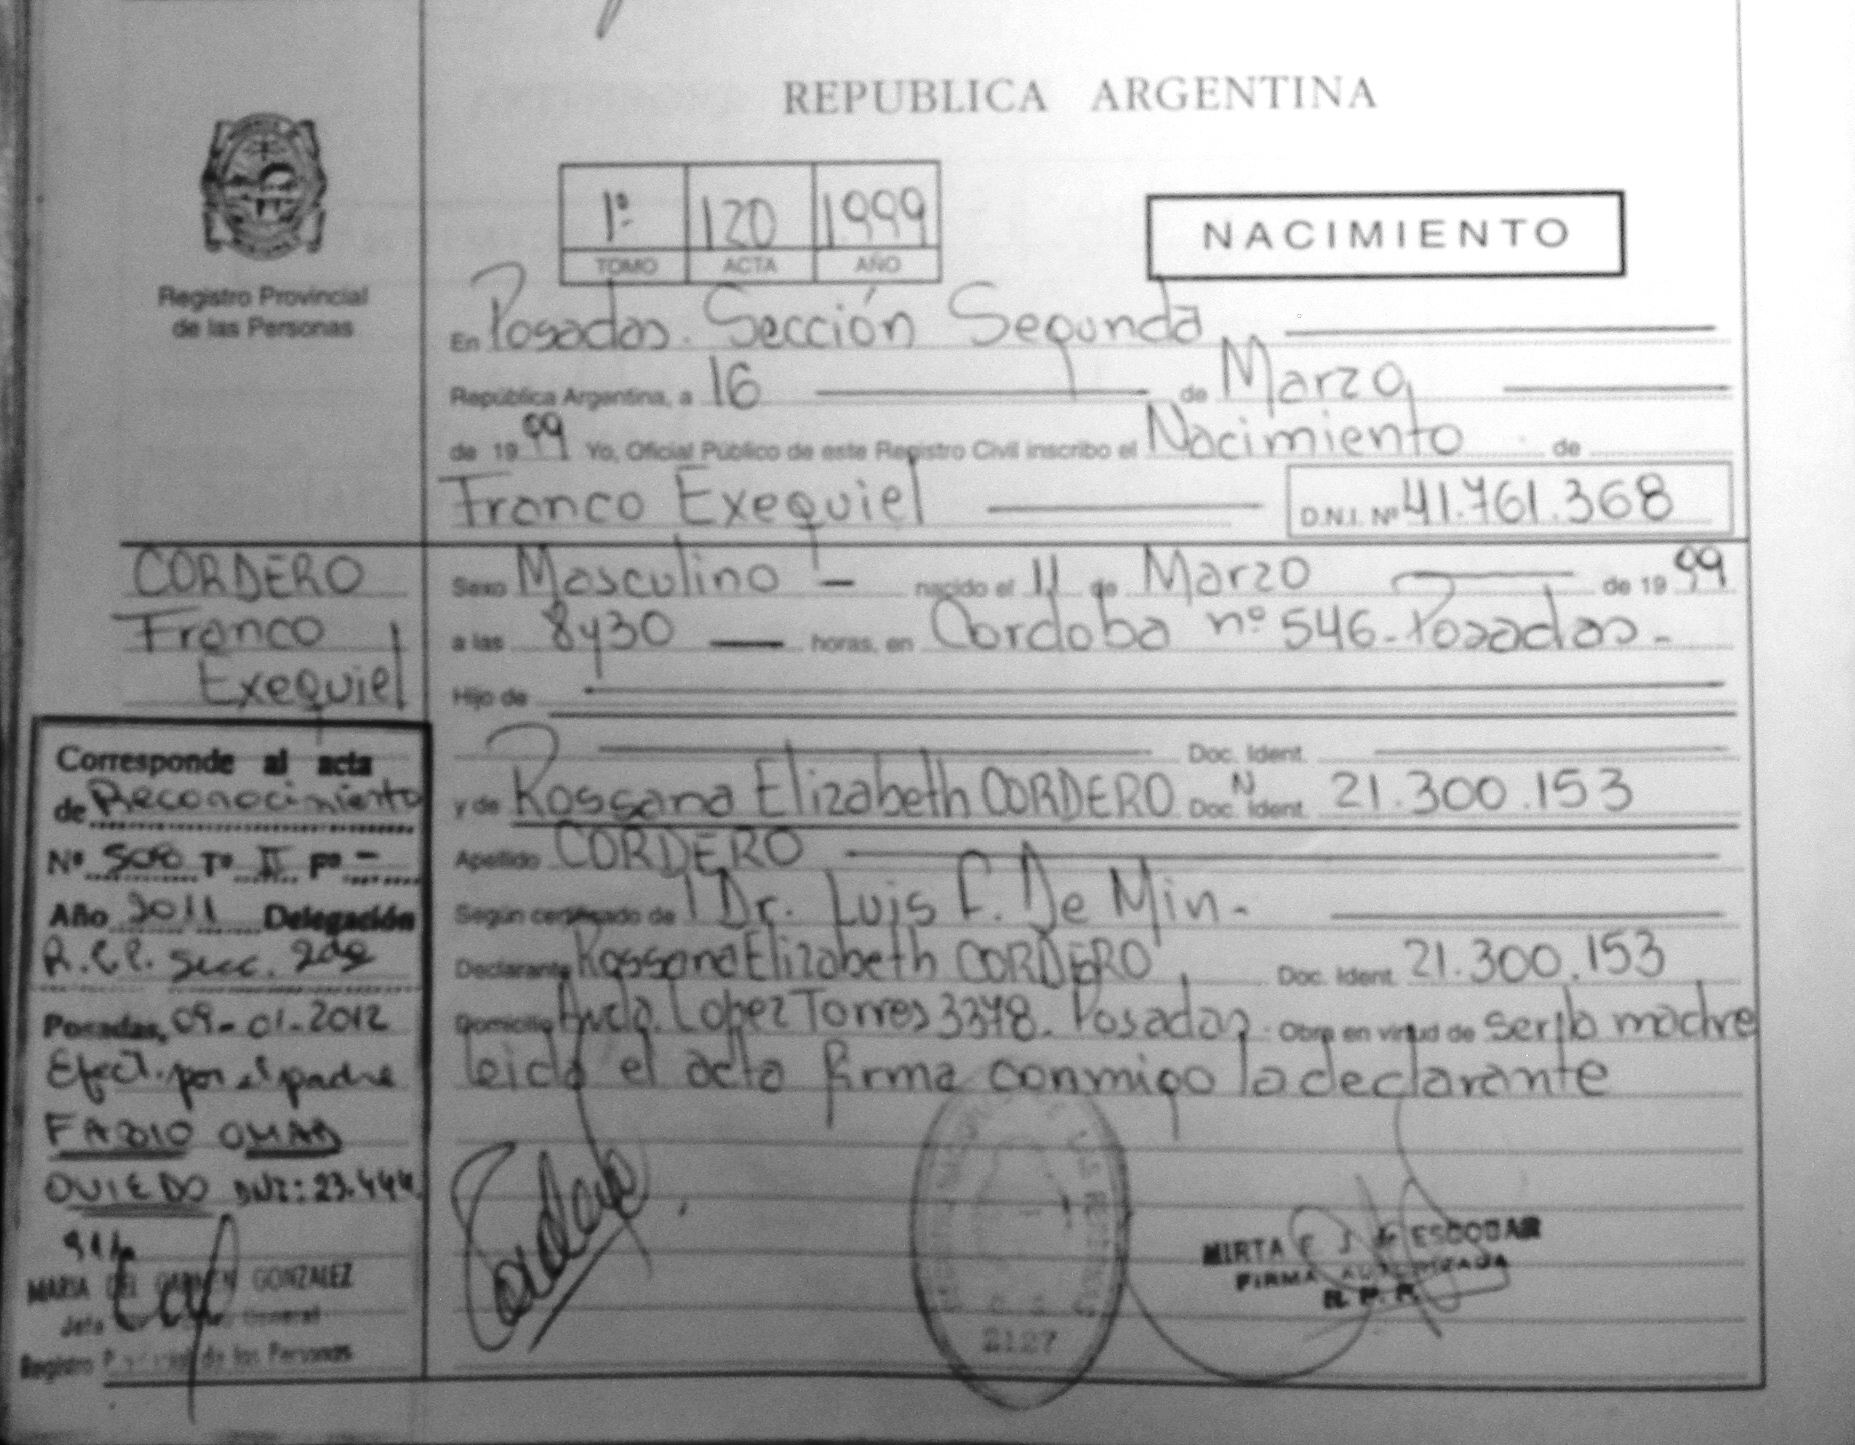 REPUBLICA ARGENTINA
Registro Provincial
de las Personas
1º 120 1999
TOMO ACTA AÑO
NACIMIENTO
En Posadas. Sección Segunda
República Argentina, a 16 de Marzo
de 1999 Yo, Oficial Público de este Registro Civil inscribo el Nacimiento de
Franco Exequiel D.N.I. Nº 41.761.368
CORDERO
Franco
Exequiel
Sexo Masculino nacido el 11 de Marzo de 1999
a las 8y30 horas, en Cordoba nº 546-Posadas-
Hijo de
Doc. Ident.
y de Rossana Elizabeth CORDERO Doc. Ident. N 21.300.153
Apellido CORDERO
Según certificado de l Dr. Luis F. De Min-
Declarante Rossana Elizabeth CORDERO Doc. Ident. 21.300.153
Domicilio Avda. Lopez Torres 3378- Posadas. Obra en virtud de ser la madre
leida el acta firma conmigo la declarante
Corresponde al acta
de Reconocimiento
Nº 508 Tº II Fº -
Año 2011 Delegación
R.C.P. Secc. 2da
Posadas, 09-01-2012
Efect. por el padre
FABIO OMAR
OVIEDO DNI: 23.444.
MARIA DEL CARMEN GONZALEZ
Jefa General
Registro Provincial de las Personas
Cordero
2127
MIRTA E. J. de ESCOBAR
FIRMA AUTORIZADA
R. P. P.